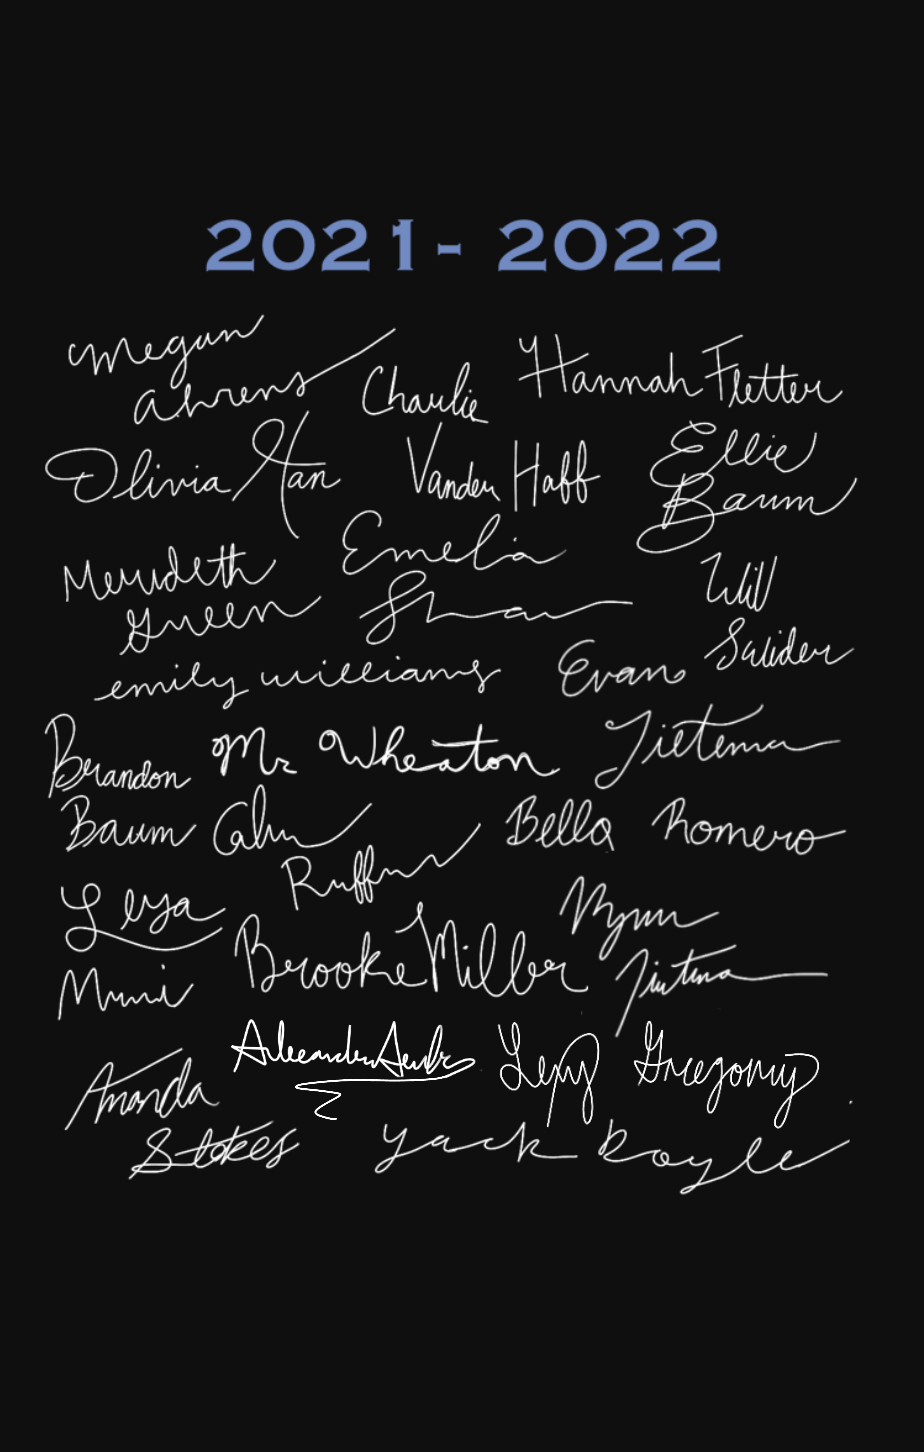 2021 - 2022
Megan
Ahrens
Charlie
Vander Haff
Hannah Fletter
Olivia Han
Ellie
Baum
Merideth
Green
Emelia
Shaw
Will
Snider
emily williams
Evan
Tietema
Brandon
Baum
Mr Wheaton
Calvin
Ruffin
Bella Romero
Leya
Brooke Miller
Rynn
Tietema
Lexy Gregory
Amanda
Stokes
Jack Doyle